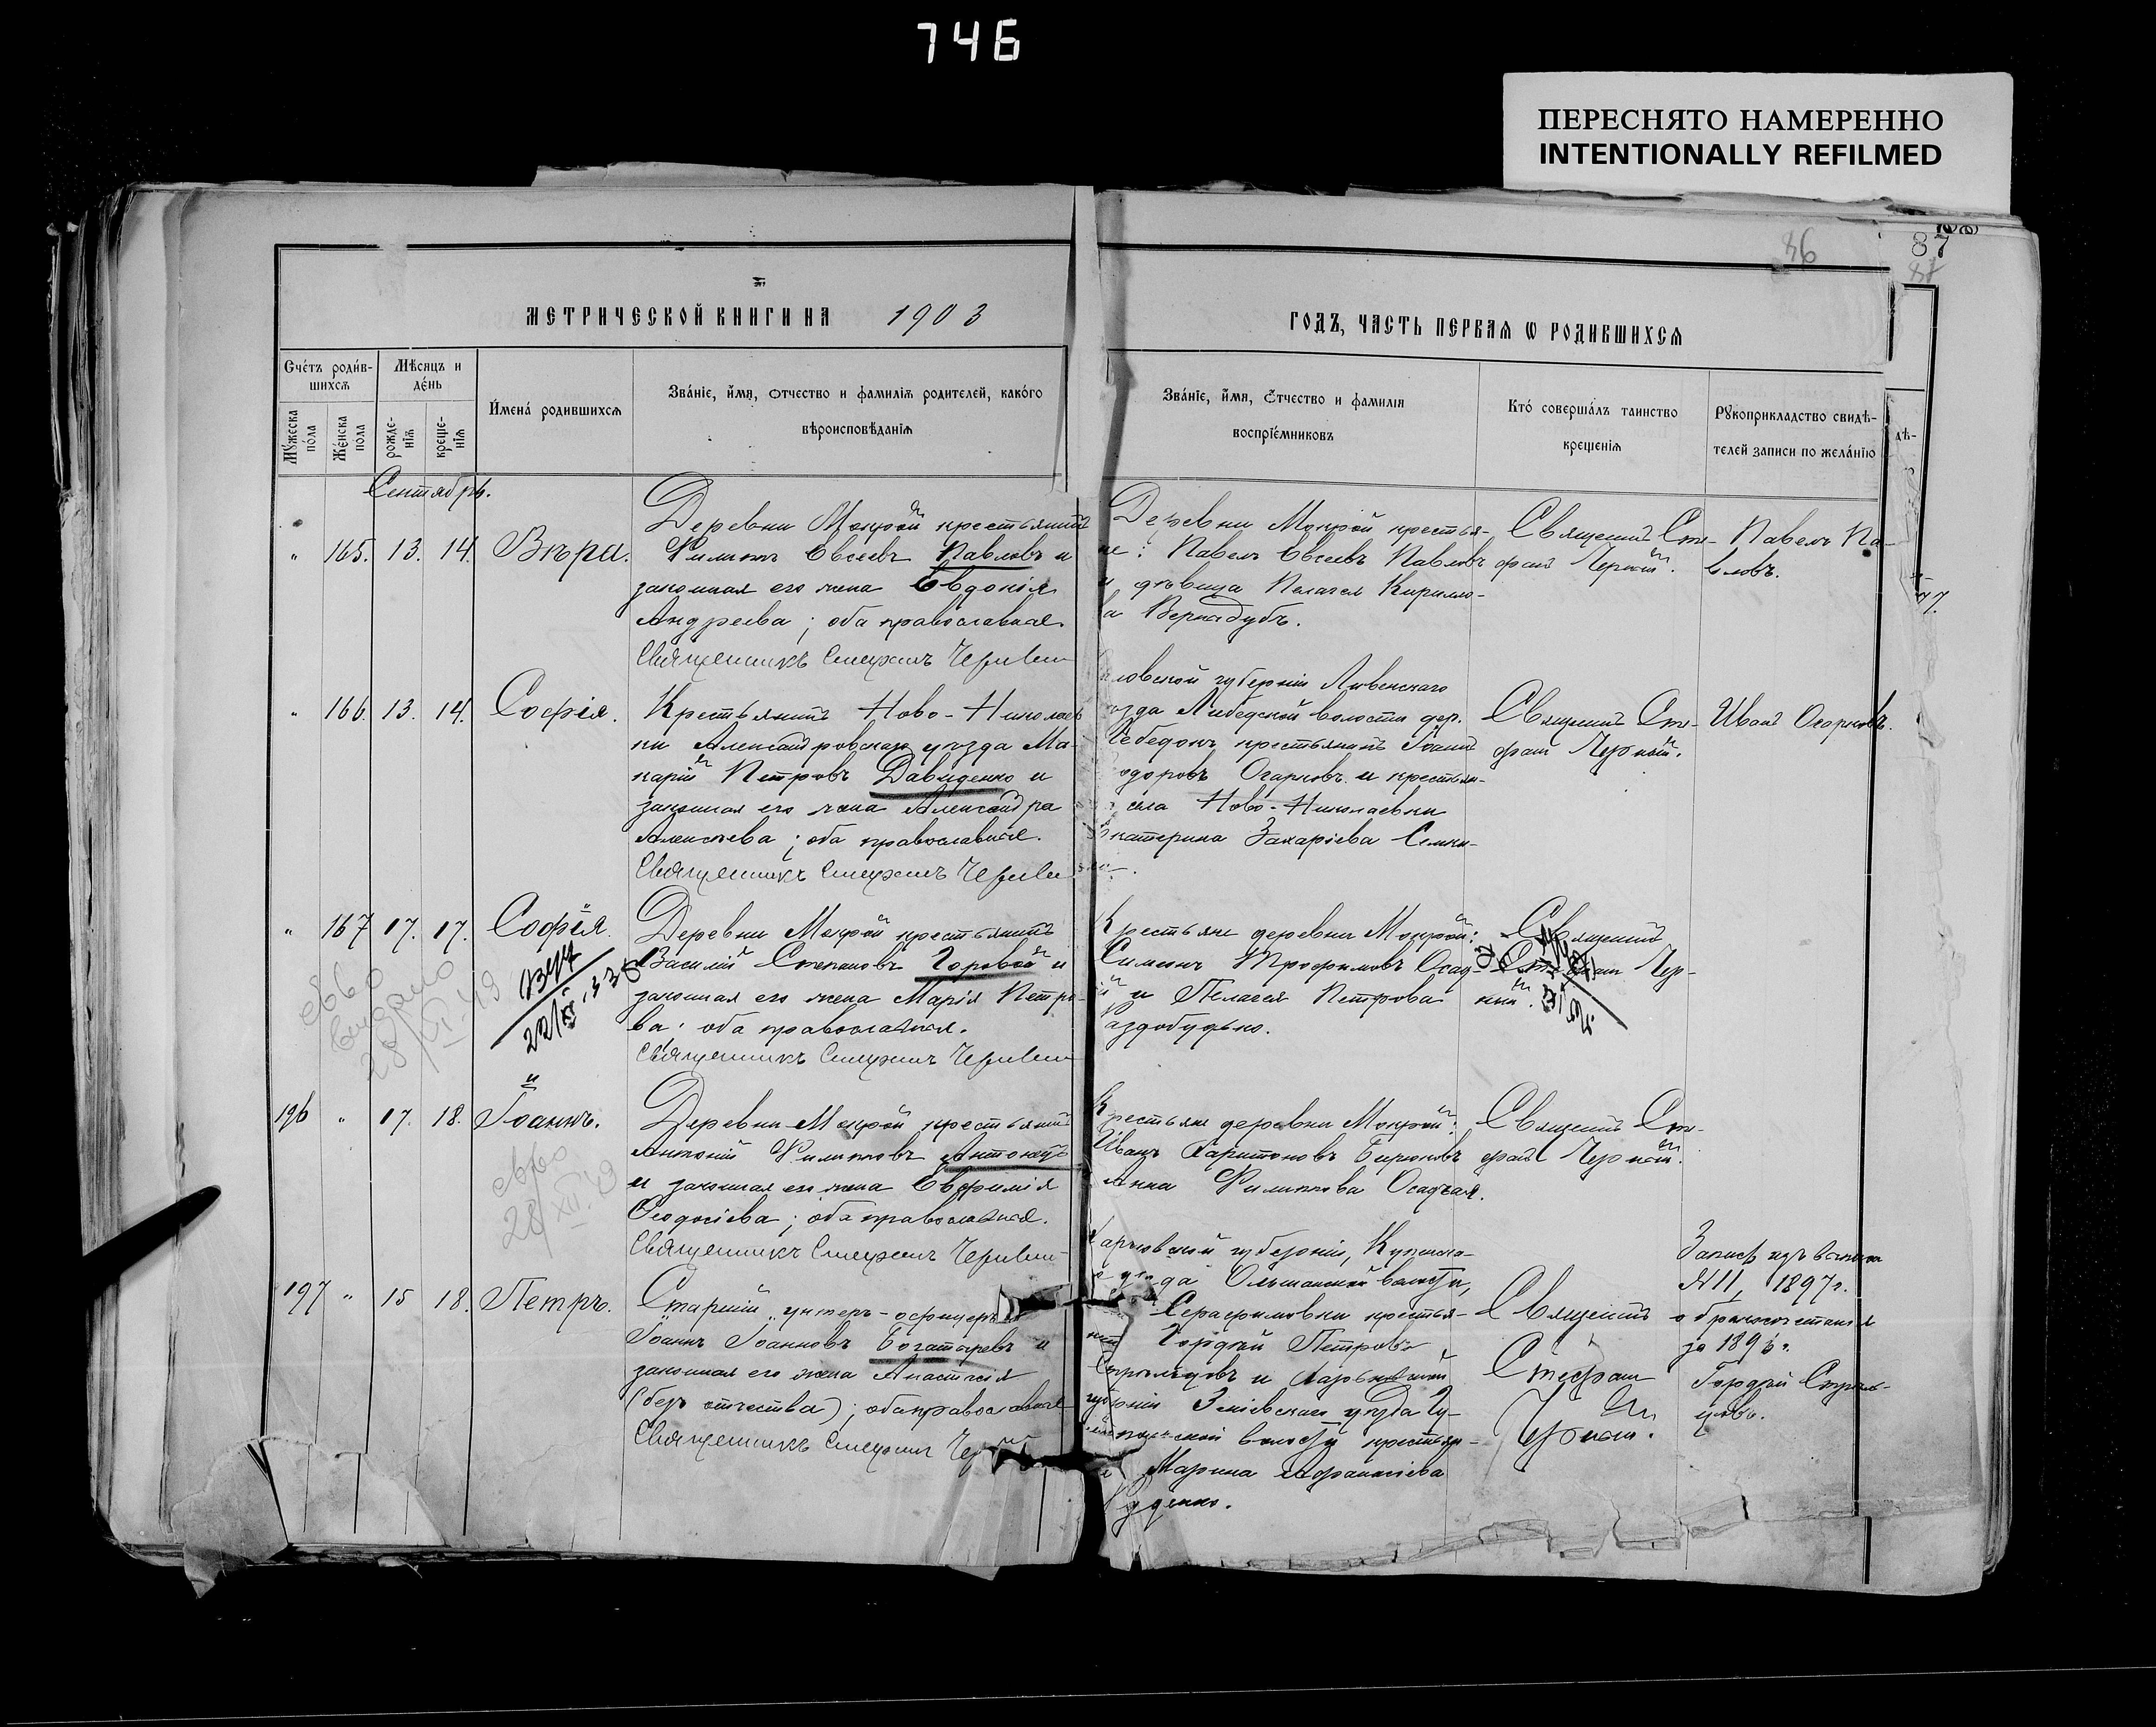 746
ПЕРЕСНЯТО НАМЕРЕННО
INTENTIONALLY REFILMED
86
87
МЕТРИЧЕСКОЙ КНИГИ НА 1903
ГОДЪ, ЧАСТЬ ПЕРВАЯ Ѡ РОДИВШИХСЯ
Счетъ родив-
шихся
Мѣсяцъ и
день
Имена родившихся
Званіе, имя, отчество и фамилія родителей, какого
вѣроисповѣданія
Мужеска
пола
Женска
пола
рожде-
нія
креще-
нія
Званіе, имя, отчество и фамилія
воспріемниковъ
Кто совершалъ таинство
крещенія
Рукоприкладство свидѣ-
телей записи по желанію
Сентябрь.
" 165. 13. 14. Вѣра.
Деревни Мокрой крестьянинъ
Филиппъ Евсеевъ Павловъ и
законная его жена Евдокія
Андреева; оба православные.
Священникъ Стефанъ
Деревни Мокрой крестья-
не: Павелъ Евсеевъ Павловъ
и дѣвица Пелагея Кирилло-
ва Вернадубъ.
Священникъ Сте-
фанъ Черный.
Павелъ Па-
вловъ.
" 166. 13. 14. Софія.
Крестьянинъ Ново-Николаев
ки Александровскаго уѣзда Ма-
карій Петровъ Давиденко и
законная его жена Александра
Алексѣева; оба православные.
Священникъ Стефанъ
ловской губерніи Ливенскаго
уѣзда Лебедской волости дер.
Лебедокъ крестьянинъ Іоаннъ
одоровъ Огарковъ и крестьян-
села Ново-Николаевки
Екатерина Захаріева Семен-
Священникъ Сте-
фанъ Черный.
Иванъ Огарковъ.
" 167 17. 17. Софія.
Деревни Мокрой крестьянинъ
Василій Степановъ Горовой и
законная его жена Марія Петро-
ва; оба православные.
Священникъ Стефанъ
Крестьяне деревни Мокрой:
Симеонъ Трофимовъ Осад-
и Пелагея Петрова
Раздобудько.
Священникъ
Стефанъ Чер-
ный.
выдано
28/XI.49
196 " 17. 18. Іоаннъ.
Деревни Мокрой крестьянинъ
Антоній Филипповъ Антонецъ
и законная его жена Евфимія
Ѳеодосіева; оба православные.
Священникъ Стефанъ
Крестьяне деревни Мокрой:
Иванъ Харитоновъ Бирюковъ
Анна Филиппова Осадчая.
Священникъ Сте-
фанъ Черный.
28/XII.49
197 " 15 18. Петръ.
Старшій унтеръ-офицеръ
Іоаннъ Іоанновъ Богатыревъ и
законная его жена Анастасія
(безъ отчества); оба православные
Священникъ Стефанъ
Харьковской губерніи, Купянска-
го уѣзда Ольшанской волости,
Серафимовки крестья-
нинъ Гордій Петровъ
Стрѣльцовъ и Харьковской
губерніи Зміевскаго уѣзда
волости крестьян-
Марина Афанасіева
Священникъ
Стефанъ
Черный.
№ 11, 1897 г.
о бракосочетаніи
за 1896 г.
Гордій Стрѣль-
цовъ.